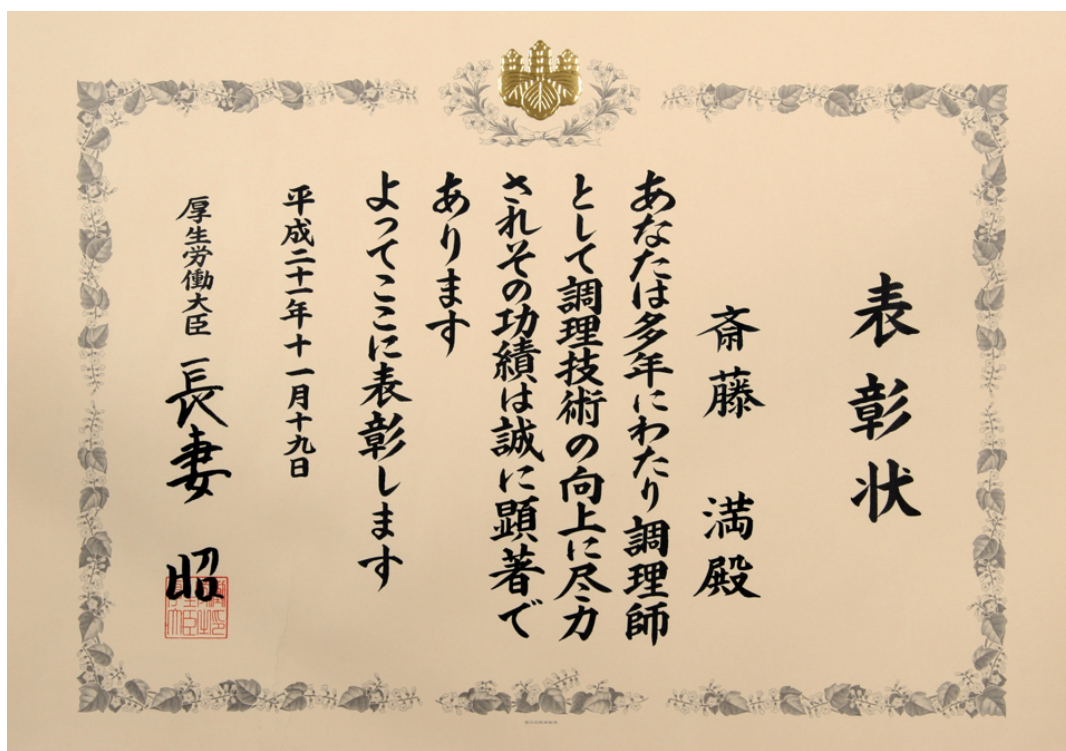 表彰状
斎藤 満殿
あなたは多年にわたり調理師
として調理技術の向上に尽力
されその功績は誠に顕著で
あります
よってここに表彰します
平成二十一年十一月十九日
厚生労働大臣 長妻 昭